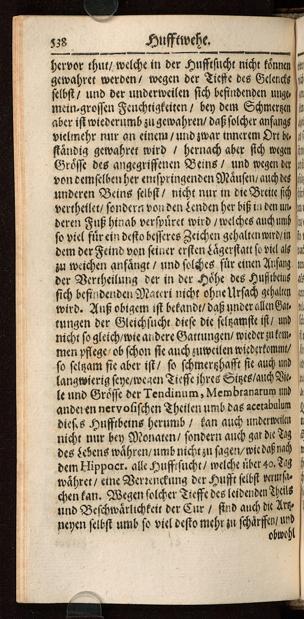 538 Hufftwehe.
hervor thut/ welche in der Hufftsucht nicht können
gewahret werden/ wegen der Tieffe des Gelencks
selbst/ und der underweilen sich befindenden unge-
mein-grossen Feuchtigkeiten/ bey dem Schmertzen
aber ist wiederumb zu gewahren/ daß solcher anfangs
vielmehr nur an einem/ und zwar innerem Ort be-
ständig gewahret wird/ hernach aber sich wegen
Grösse des angegriffenen Beins/ und wegen der
von demselben her entspringenden Mäusen/ auch des
underen Beins selbst/ nicht nur in die Breite sich
vertheilet/ sondern von den Lenden her biß in den un-
deren Fuß hinab verspüret wird/ welches auch umb
so viel für ein desto besseres Zeichen gehalten wird/ in
dem der Feind von seiner ersten Lägerstatt so viel als
zu weichen anfängt/ und solches für einen Anfang
der Vertheilung der in der Höhe des Hufftbeins
sich befindenden Materi nicht ohne Ursach gehalten
wird. Auß obigem ist bekandt/ daß under allen Gat-
tungen der Gleichsucht diese die seltzamste ist/ und
nicht so gleich/ wie andere Gattungen/ wieder zu kom-
men pflege/ ob schon sie auch zuweilen wiederkommt/
so seltzam sie aber ist/ so schmerzhafft sie auch und
langwierig seye/ wegen Tieffe ihres Sitzes/ auch Vie-
le und Grösse der Tendinum, Membranarum und
anderen nervosischen Theilen umb das acetabulum
dieses Hufftbeins herumb/ kan auch underweilen
nicht nur bey Monaten/ sondern auch gar die Tag
des Lebens währen/ umb nicht zu sagen/ wie daß nach
dem Hippocr. alle Hufftsucht/ welche über 40. Tag
währet/ eine Verrenckung der Hufft selbst verursa-
chen kan. Wegen solcher Tieffe des leidenden Theils
und Beschwärlichkeit der Cur/ sind auch die Artz-
neyen selbst umb so viel desto mehr zu schärffen/ und
obwohl